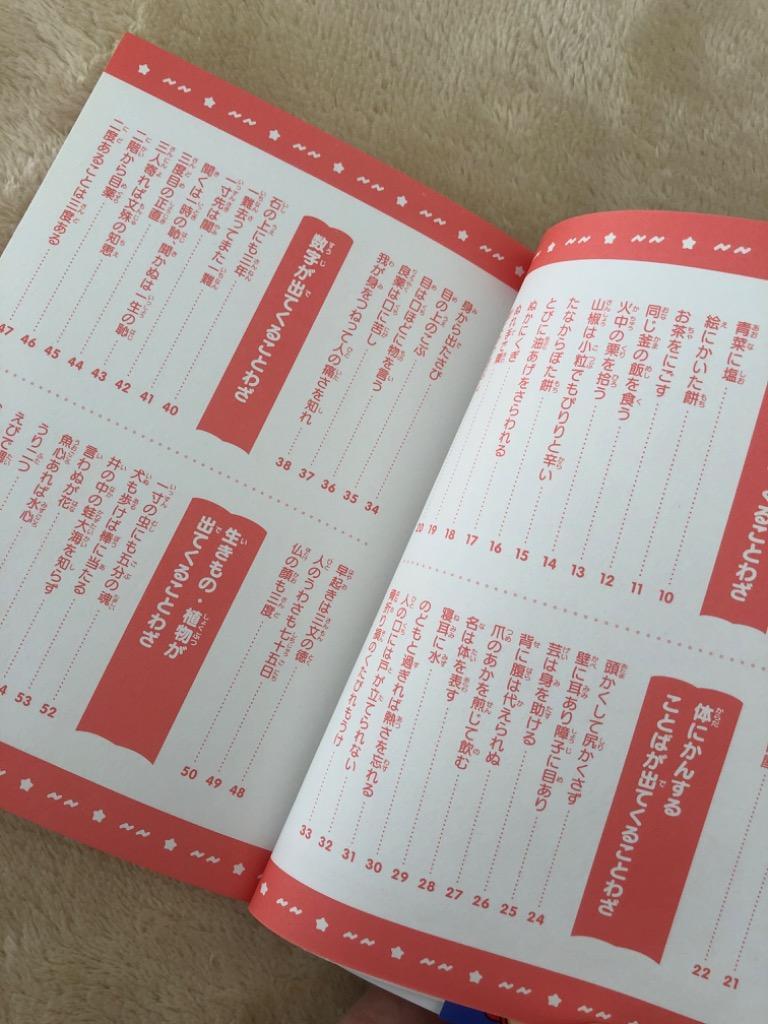 てくることわざ
青菜に塩 10
絵にかいた餅 11
お茶をにごす 12
同じ釜の飯を食う 13
火中の栗を拾う 14
山椒は小粒でもぴりりと辛い 15
たなからぼた餅 16
とびに油あげをさらわれる 17
ぬかにくぎ 18
ぬれ手で粟 19
20
21
22
体にかんする
ことばが出てくることわざ
頭かくして尻かくさず 24
壁に耳あり障子に目あり 25
芸は身を助ける 26
背に腹は代えられぬ 27
爪のあかを煎じて飲む 28
名は体を表す 29
寝耳に水 30
のどもと過ぎれば熱さを忘れる 31
人の口には戸が立てられない 32
骨折り損のくたびれもうけ 33
身から出たさび 34
目の上のこぶ 35
目は口ほどに物を言う 36
良薬は口に苦し 37
我が身をつねって人の痛さを知れ 38
数字が出てくることわざ
石の上にも三年 40
一難去ってまた一難 41
一寸先は闇 42
聞くは一時の恥、聞かぬは一生の恥 43
三度目の正直 44
三人寄れば文殊の知恵 45
二階から目薬 46
二度あることは三度ある 47
早起きは三文の徳 48
人のうわさも七十五日 49
仏の顔も三度 50
生きもの・植物が
出てくることわざ
一寸の虫にも五分の魂 52
犬も歩けば棒に当たる 53
井の中の蛙大海を知らず
言わぬが花
魚心あれば水心
うり二つ
えびで鯛